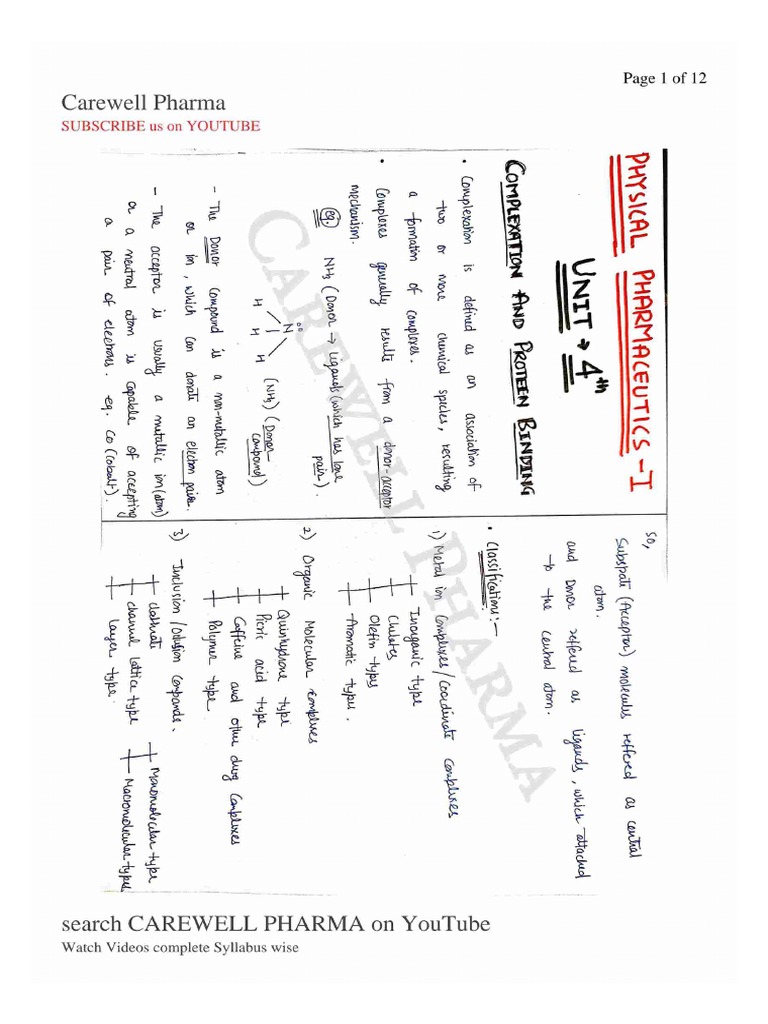 Page 1 of 12
Carewell Pharma
SUBSCRIBE us on YOUTUBE
PHYSICAL PHARMACEUTICS-I
UNIT → 4th
COMPLEXATION AND PROTEIN BINDING
• Complexation is defined as an association of
two or more chemical species, resulting
a formation of complexes.
• Complexes generally results from a donor-acceptor
mechanism.
eg. NH3 (Donor → Ligands (which has lone
pair).
N
H H H (NH3) (Donor
compound))
- The Donor Compound is a non-metallic atom
or in, which can donate an electron pair.
- The acceptor is usually a metallic ion (atom)
or a neutral atom is capable of accepting
a pair of electrons. eg. Co (cobalt).
So,
Substrate (Acceptor) molecules reffered as central
atom.
and Donor reffered as ligands, which attached
to the central atom.
• Classifications:-
1) Metal ion Complexes / Coordinate Complexes
Inorganic type
Chelates
Olefin types
Aromatic types.
2) Organic Molecular Complexes
Quinhydrone type
Picric acid type.
Caffeine and other drug Complexes
Polymer type.
3) Inclusion / Occlusion Compounds.
Clathrate
channel lattice type
Layer type.
Monomolecular type
Macromolecular type.
CAREWELL PHARMA
search CAREWELL PHARMA on YouTube
Watch Videos complete Syllabus wise